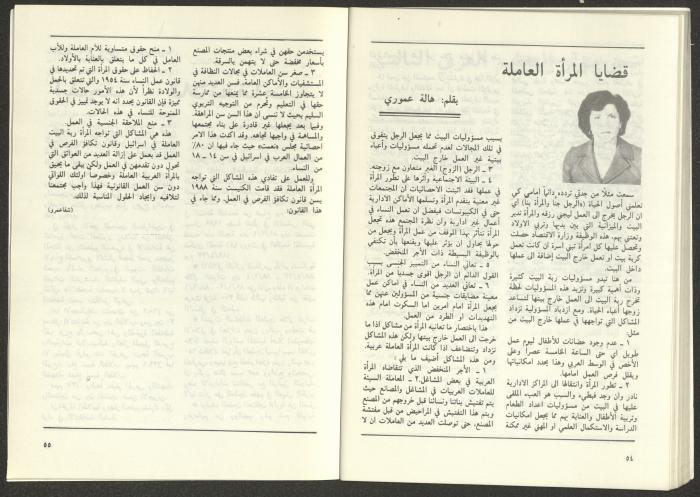 قضايا المرأة العاملة
بقلم: هالة عموري
سمعت مثلاً من جدتي تردده دائماً أمامي كي
تعلمني أصول الحياة («الرجل جنا والمرأة بنا) أي
ان الرجل يخرج الى العمل ليجني رزقه والمرأة تدير
البيت والميزانية التي بين يديها وتربي الاولاد
وتعتني بهم. هذه الوظيفة وزارة الاقتصاد حصلت
وتحصل عليها كل امرأة تبني أسرة ان كانت تعمل
كربة بيت او تعمل خارج البيت إضافة الى عملها
داخل البيت.
من هنا تبدو مسؤوليات ربة البيت كثيرة
وذات أهمية كبيرة وتزيد هذه المسؤوليات لحظة
تخرج ربة البيت الى العمل خارج بيتها لتساعد
زوجها أعباء الحياة. ومع ازدياد المسؤولية تزداد
المشاكل التي تواجهها في عملها خارج البيت من
مثل:
١ - عدم وجود حضانات للأطفال ليوم عمل
طويل أي حتى الساعة الخامسة عصراً وعلى
الأخص في الوسط العربي وهذا يحدد امكانياتها
ويقلل فرص العمل امامها.
٢ - تطور المرأة وانتقالها الى المراكز الادارية
نادر وان وجد فبطيء والسبب هو العبء الملقى
عليها في البيت من مسؤوليات اعداد الطعام
وتربية الأطفال والعناية بهم مما يجعل امكانيات
الدراسة والاستكمال العلمي او المهني غير ممكنة
بسبب مسؤوليات البيت مما يجعل الرجل يتفوق
في تلك المجالات لعدم تحمله مسؤوليات وأعباء
بيتية غير العمل خارج البيت.
٣ - الرجل (الزوج) الغير متعاون مع زوجته.
٤ - البيئة الاجتماعية وأثرها على تطور المرأة
في عملها فقد اثبتت الاحصائيات ان المجتمعات
غير معنية بتقدم المرأة وتسلمها الأماكن الادارية
حتى في الكيبوتسات فيفضل ان تعمل النساء في
أعمال غير ادارية وان نظرة المجتمع هذه تجعل
المرأة تتأثر بهذا الموقف من عمل المرأة ويجعل من
حولها يحاول ان يؤثر عليها ويقنعها بأن تكتفي
بالوظيفة البسيطة ذات الأجر المنخفض.
٥ - تعاني النساء من التمييز الجنسي بسبب
القول الدائم ان الرجل أقوى جسدياً من المرأة.
٦ - تعاني العديد من النساء في اماكن عمل
معينة مضايقات جنسية من المسؤولين عنهن مما
يجعل المرأة امام أمرين اما السكوت امام هذه
التهديدات او الطرد من العمل.
هذا باختصار ما تعانيه المرأة من مشاكل اذا ما
خرجت الى العمل خارج بيتها ولكن هذه المشاكل
تزداد وتتضاعف اذا كانت المرأة العاملة عربية.
ومن هذه المشاكل أضيف ما يلي:
١ - الأجر المنخفض الذي تتقاضاه المرأة
العربية في بعض المشاغل. ٢ - المعاملة السيئة
للعاملات العربيات في المشاغل والمصانع حيث
يتم تفتيش بناتنا ونسائنا قبل خروجهم من المصنع
ويتم هذا التفتيش في المراحيض من قبل مفتشة
المصنع، حتى توصلت العديد من العاملات ان لا
٥٤
يستخدمن حقهن في شراء بعض منتجات المصنع
بأسعار مخفضة حتى لا يتهمن بالسرقة.
٣ - صغر سن العاملات في مجالات النظافة في
المستشفيات والأماكن العامة. فسن العديد منهن
لا يتجاوز الخامسة عشرة مما يمنعها من ممارسة
حقها في التعليم وتحرم من التوجيه التربوي
السليم بحيث لا ننسى ان هذا السن سن المراهقة.
وفيما بعد يجعلها غير قادرة على بناء مجتمعها
والمساهمة في واجبها تجاهه. وقد أكدت هذا الامر
احصائية مجلس «نعمت» حيث جاء فيها ان ٨٠٪
من العمال العرب في اسرائيل في سن ١٤ - ١٨
من النساء.
وللعمل على تفادي هذه المشاكل التي تواجه
المرأة العاملة فقد قامت الكنيست سنة ١٩٨٨
بسن قانون تكافؤ الفرص في العمل. ومما جاء في
هذا القانون:
١ - منح حقوق متساوية للأم العاملة وللأب
العامل في كل ما يتعلق بالعناية بالأولاد.
٢ - الحفاظ على حقوق المرأة التي تم تحديدها في
قانون عمل النساء سنة ١٩٥٤ والتي تتعلق بالحمل
والولادة نظراً لأن هذه الأمور حالات جسدية
مميزة فإن القانون يحدد انه لا يوجد تمييز في الحقوق
الممنوحة للنساء في هذه الحالات.
٣ - منع الملاحقة الجنسية في العمل.
هذه هي المشاكل التي تواجه المرأة ربة البيت
العاملة في اسرائيل وقانون تكافؤ الفرص في
العمل قد يعمل على إزالة العديد من العوائق التي
تحول دون تقدمهن في العمل ولكن يبقى ما يحيق
بالمرأة العربية العاملة وخصوصا اولئك اللواتي
دون سن العمل القانونية فهذا واجب مجتمعنا
لتلافيه وايجاد الحلول المناسبة لذلك.
(شفاعمرو)
٥٥